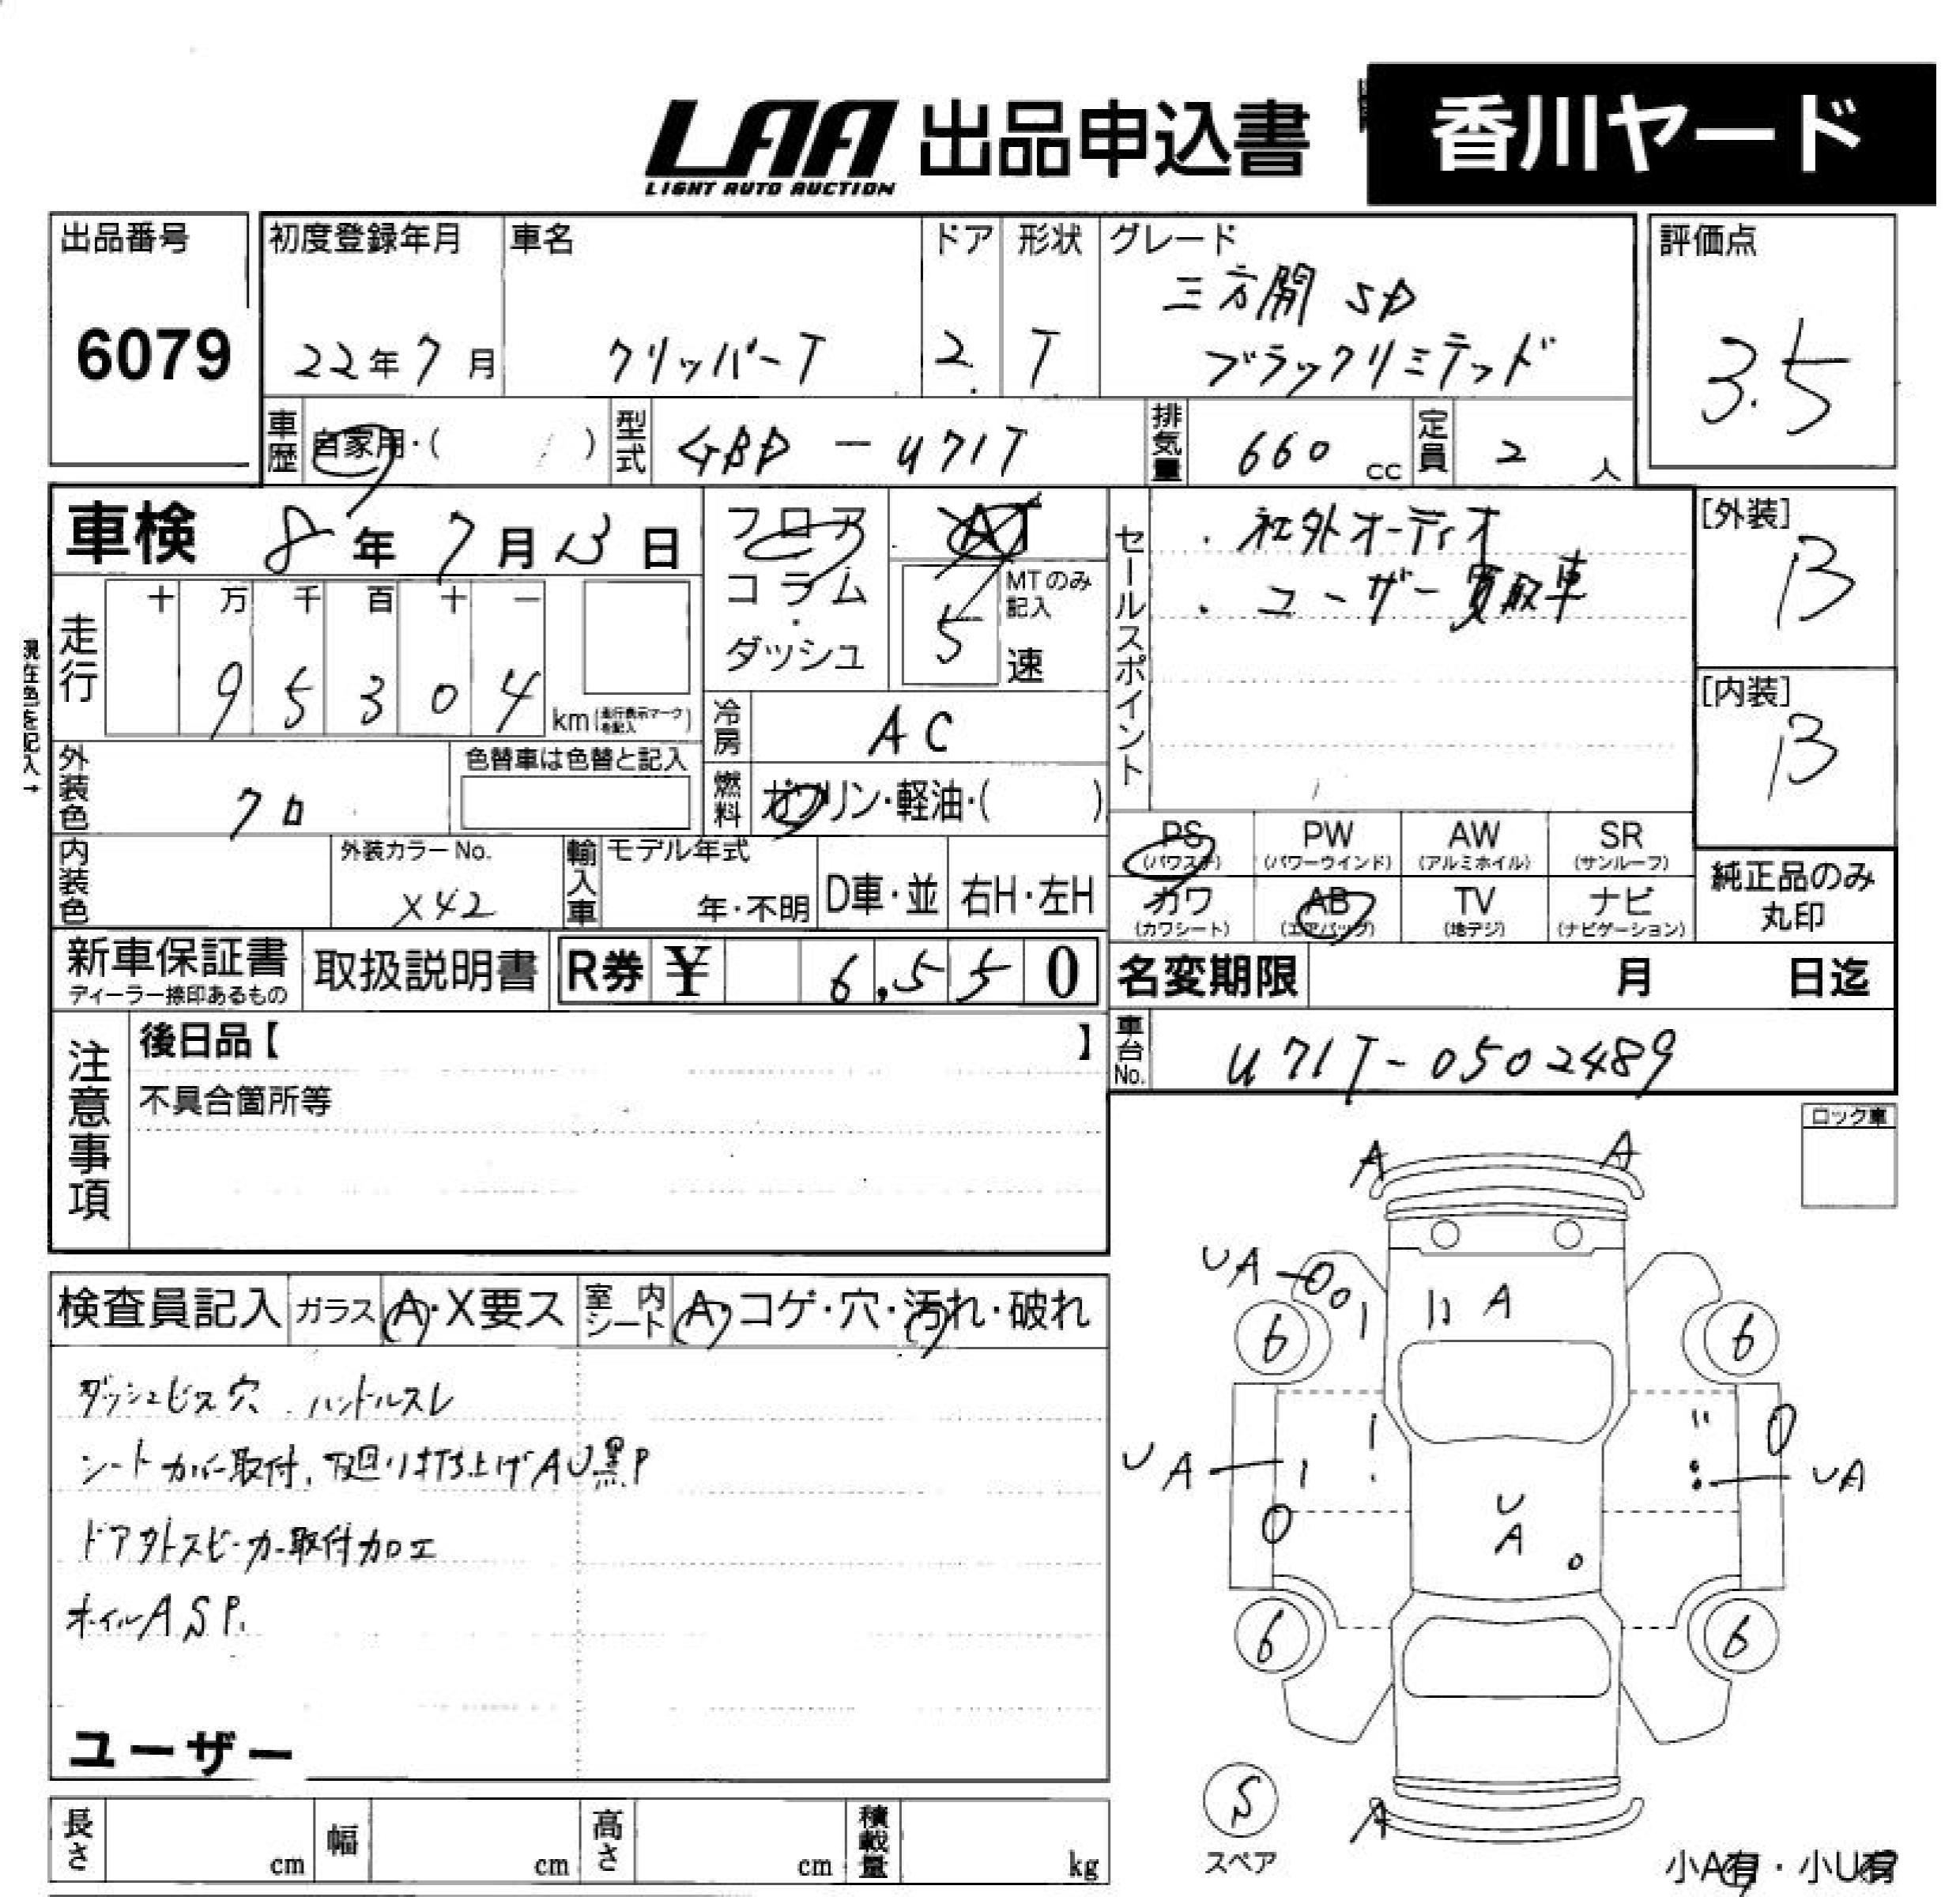 LAA 出品申込書 香川ヤード
LIGHT AUTO AUCTION
出品番号 初度登録年月 車名 ドア 形状 グレード 評価点
6079 22年7月 クリッパーT 2 T 三方開 SD 3.5
ブラックリミテッド
車歴 自家用・( ) 型式 GBD-U71T 排気量 660 cc 定員 2 人
車検 8年7月13日 フロア AT
コラム・ダッシュ 5速 MTのみ記入
セールスポイント
・社外オーディオ
・ユーザー買取車
[外装] B
[内装] B
現在色を記入→
走行 十 万 千 百 十 一
9 5 3 0 4 km (走行表示マークを記入)
冷房 AC
外装色 クロ 色替車は色替と記入
燃料 ガソリン・軽油・( )
PS (パワステ) PW (パワーウインド) AW (アルミホイル) SR (サンルーフ)
カワ (カワシート) AB (エアバッグ) TV (地デジ) ナビ (ナビゲーション)
純正品のみ丸印
内装色 外装カラーNo. X42 輸入車 モデル年式 年・不明 D車・並 右H・左H
新車保証書 ディーラー捺印あるもの 取扱説明書 R券 ¥ 6,550
名変期限 月 日迄
車台No. U71T-0502489
注意事項 後日品【 】
不具合箇所等
ロック車
検査員記入 ガラス A・X要ス 室内シート A・コゲ・穴・汚れ・破れ
ダッシュビス穴 ハンドルスレ
シートカバー取付、下廻り打ち上げAU黒P
ドア外スピーカー取付加工
ホイルASP.
ユーザー
A A
UA A
6 6
UA UA
U
A
6 6
S
スペア
A
小A有・小U有
長さ cm 幅 cm 高さ cm 積載量 kg